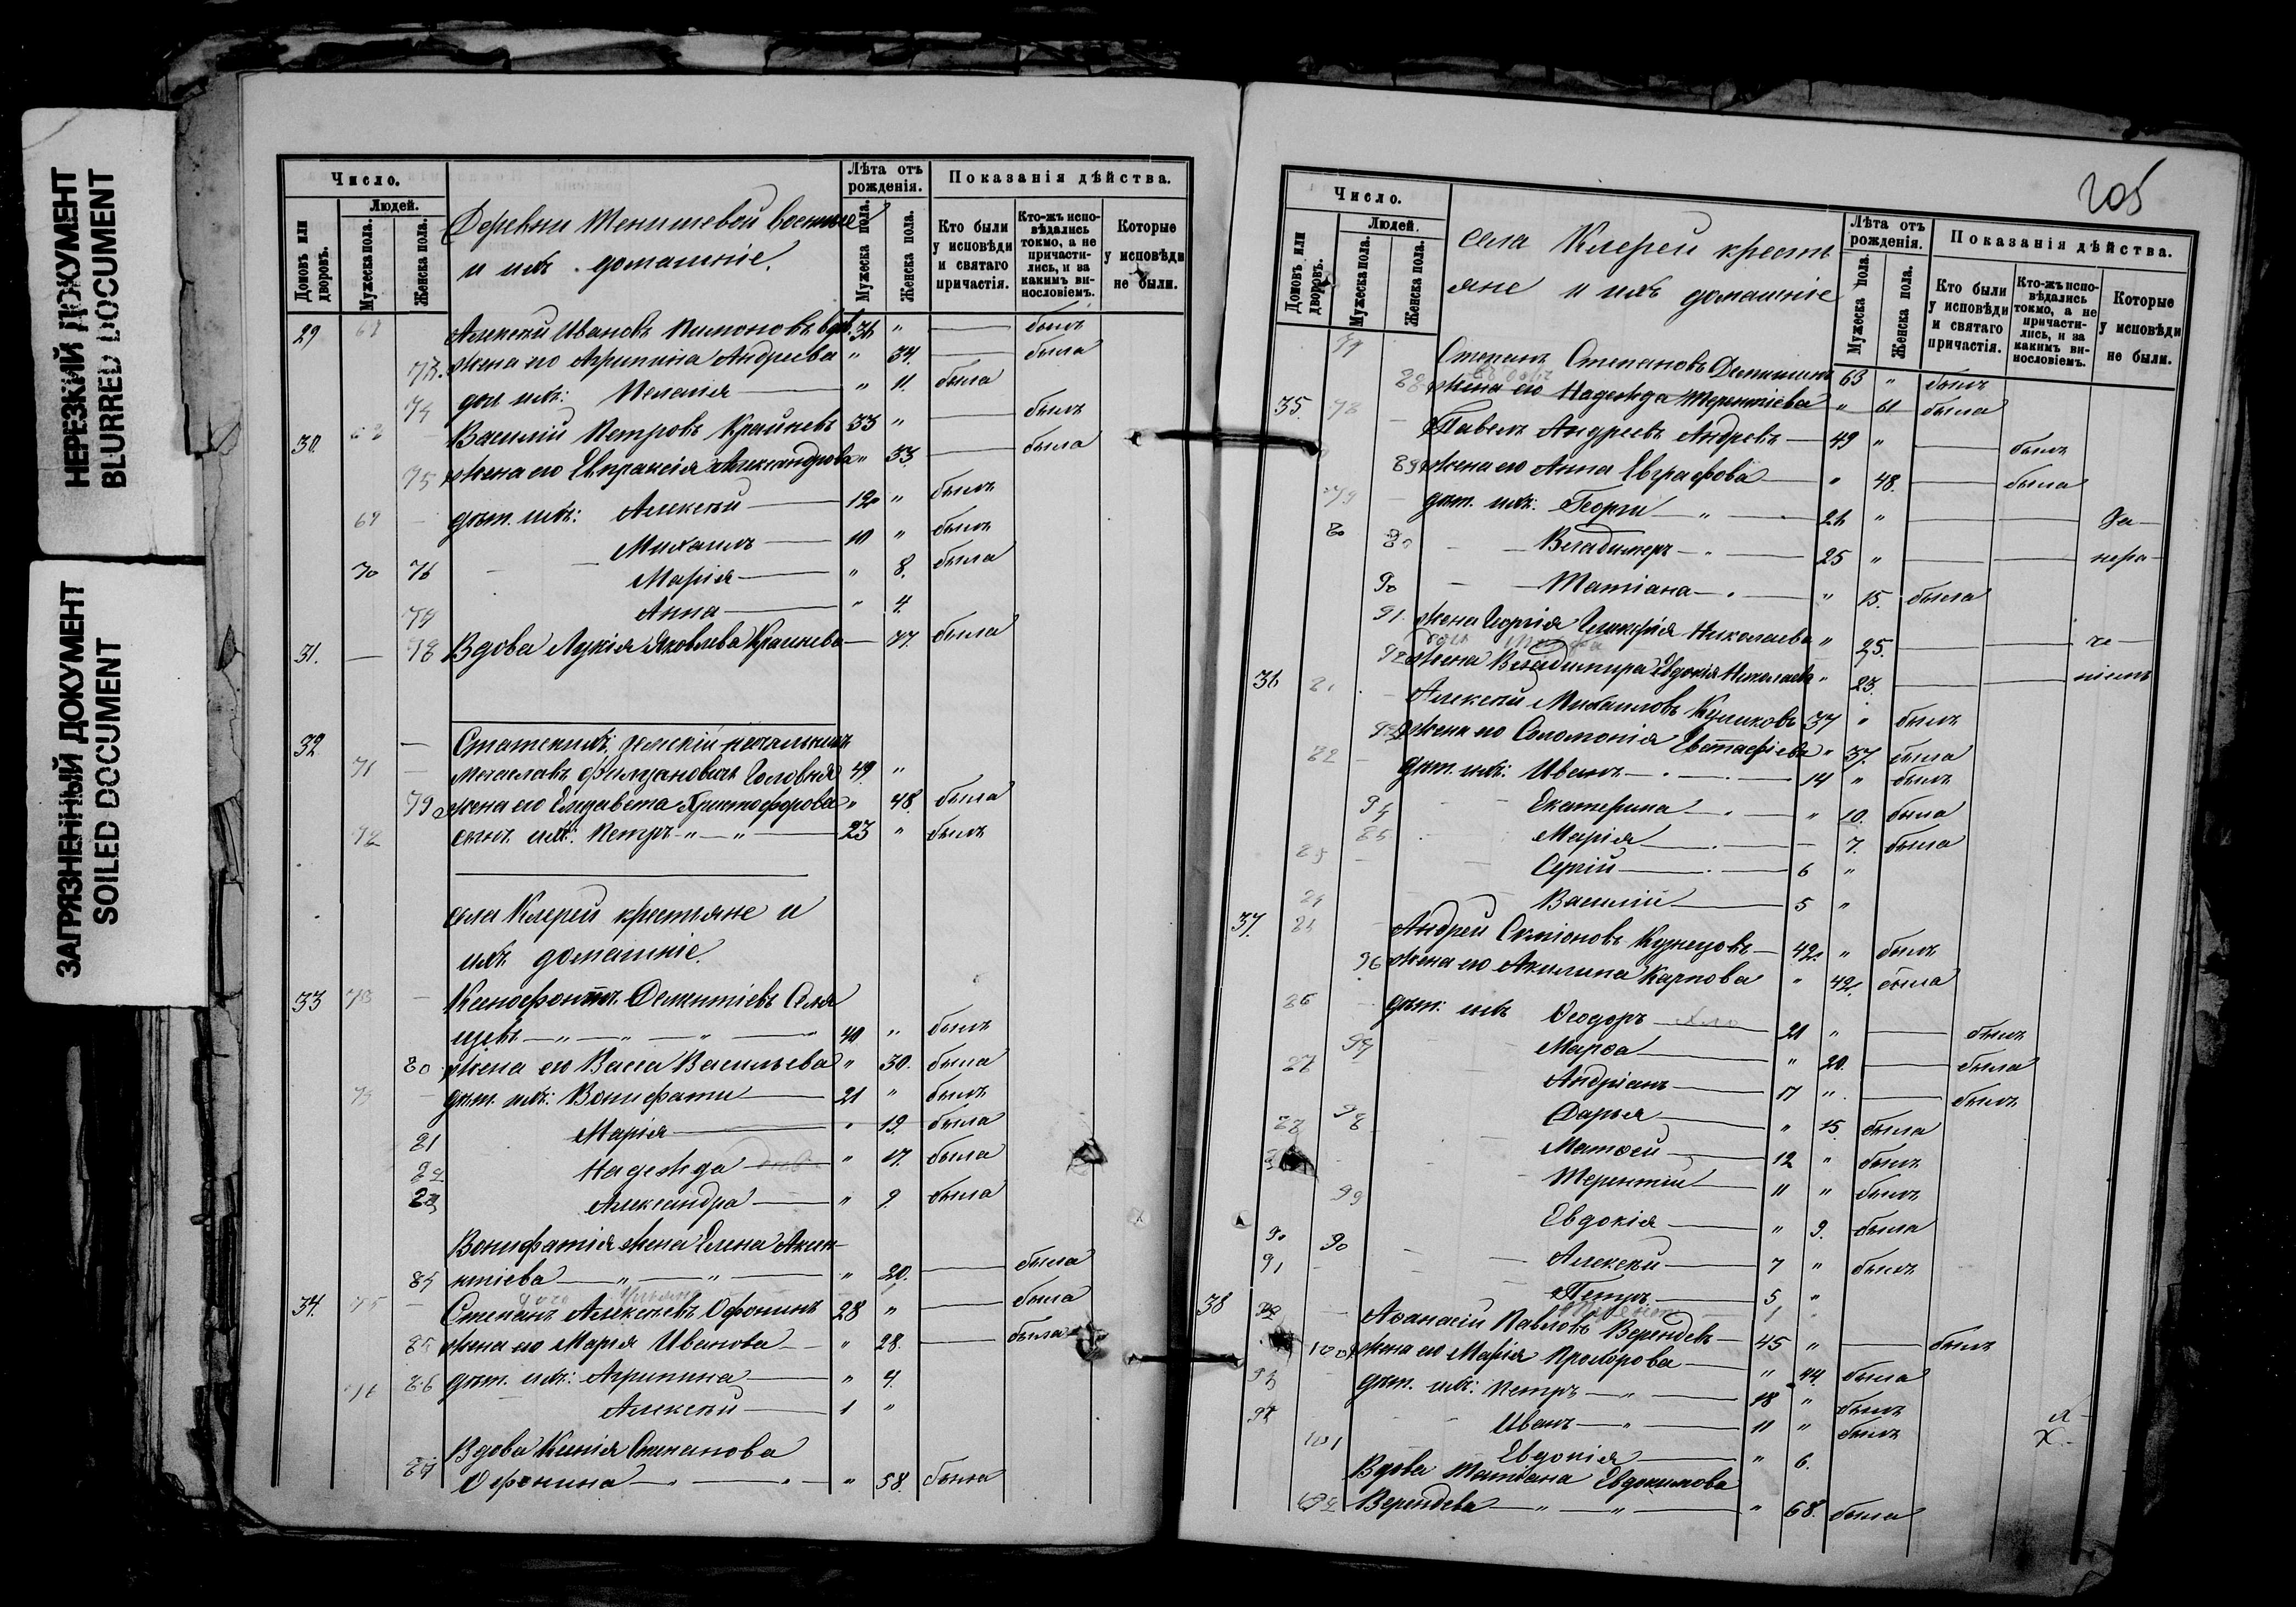 НЕРЕЗКИЙ ДОКУМЕНТ
BLURRED DOCUMENT
ЗАГРЯЗНЕННЫЙ ДОКУМЕНТ
SOILED DOCUMENT
Число.
Людей.
Домовъ или дворовъ.
Мужеска пола.
Женска пола.
Деревни Тенишевой военные
и ихъ домашніе.
Лѣта отъ рожденія.
Мужеска пола.
Женска пола.
Показанія дѣйства.
Кто были у исповѣди и святаго причастія.
Кто-жъ исповѣдались токмо, а не причастились, и за какимъ винословіемъ.
Которые у исповѣди не были.
29 Алексѣй Ивановъ 36 " — былъ
жена его Агрипина Андреева " 34. — была
74 доч ихъ: Пелагія — " 11. была
30. Василій Петровъ Крайневъ 33 " — былъ
75 жена его Евпраксія Александрова " 33. — была
69 — дѣт. ихъ: Алексѣй — 12 " былъ
Михаилъ — 10 " былъ
70 76 Марія — " 8. была
Анна — " 4.
31. — 78 Вдова Лукія Яковлева Крайнева — 77. была
32 — Статскихъ: земскій начальникъ
71 — Головня 49. "
79 жена его Елизавета Христофорова " 48. была
72 сынъ ихъ: Петръ — " — " — 23 " былъ
села Ключи крестьяне и
ихъ домашніе.
33 73 — Ксенофонтъ Дементіевъ Селя
щевъ — " — " — " — 40 " былъ
80 жена его Васса Васильева " 30. была
дѣт. ихъ: Вонифатій — 21 " былъ
81 Марья — " 19. была
82 Надежда — " 17. была
83 Александра — " 9. была
Вонифатія жена Елена Аксен-
84 тіева — " — " — " 20. — была
34. 75 — Степанъ Алексѣевъ Офонинъ 28 " — былъ
85 жена его Марія Иванова — " 28. — была
86 дѣт. ихъ: Агрипина — " 4.
76 Алексѣй — 1 "
Вдова Ксенія Степанова
87 Офонина — " 58. была
205
Число.
Людей.
Домовъ или дворовъ.
Мужеска пола.
Женска пола.
села Ключи кресть
яне и ихъ домашніе
Лѣта отъ рожденія.
Мужеска пола.
Женска пола.
Показанія дѣйства.
Кто были у исповѣди и святаго причастія.
Кто-жъ исповѣдались токмо, а не причастились, и за какимъ винословіемъ.
Которые у исповѣди не были.
Степанъ Степановъ 63 " былъ
88 жена его Надежда Терентіева " 61 была
35. 78 — Павелъ Андреевъ Андревъ — 49 " — былъ
89 жена его Анна Евграфова — " 48. — была
79 — дѣт. ихъ: Георгій — " — " — —
80 — Владимеръ — " — 25 " — — нера-
90 — Татіана — " — " 15. была
91. жена Георгія Николаева " 25. — —
92 жена Владимира Евдокія Николаева " 23. — —
36 81 — Алексѣй Михаиловъ Куликовъ 37 " былъ
93 жена его Соломонія Евстафіева " 37. была
82 — дѣт. ихъ: Иванъ — 14 " былъ
94 Екатерина — " 10. была
95 Марія — 7. была
Сергій — 6 "
Василій — 5 "
37. Андрей Симіоновъ Кузнецовъ — 42. " былъ
96 жена его Акилина Карпова " 42. была
86 дѣт: ихъ Ѳеодоръ — 21 " — былъ
97 Марѳа — " 20. — была
87 Андріанъ — 17 " — былъ
98 Дарья — " 15. была
88 Матѳей — 12 " былъ
Терентій — 11 " былъ
99 Евдокія — " 9. была
90 Алексѣй — 7 " былъ
91 Петръ — 5 "
38 92 — Аѳанасій Павловъ Верендевъ — 45 " — былъ
100 жена его Марія Прохорова — " 44. была
93 дѣт. ихъ: Петръ — " — 18 " былъ
94 Иванъ — " — 11 " былъ
101 Евдокія — " 6.
Вдова Татіана Евдокимова
102 Верендева — " — " — " 68. была